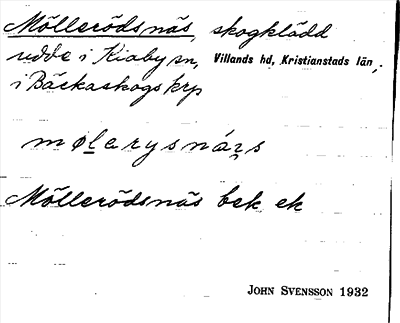 Möllerödsnäs, skogklädd
udde i Kiaby sn, Villands hd, Kristianstads län,
i Bäckaskogs krp
mølerysnás
Möllerödsnäs bek ek
JOHN SVENSSON 1932